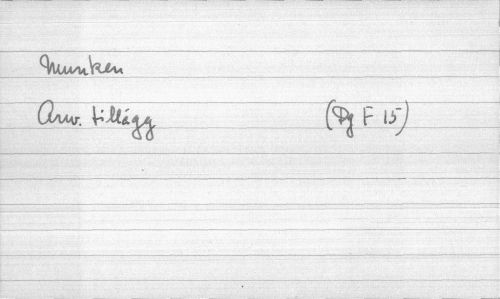 Munken
Anv. tillägg (Dg F 15)